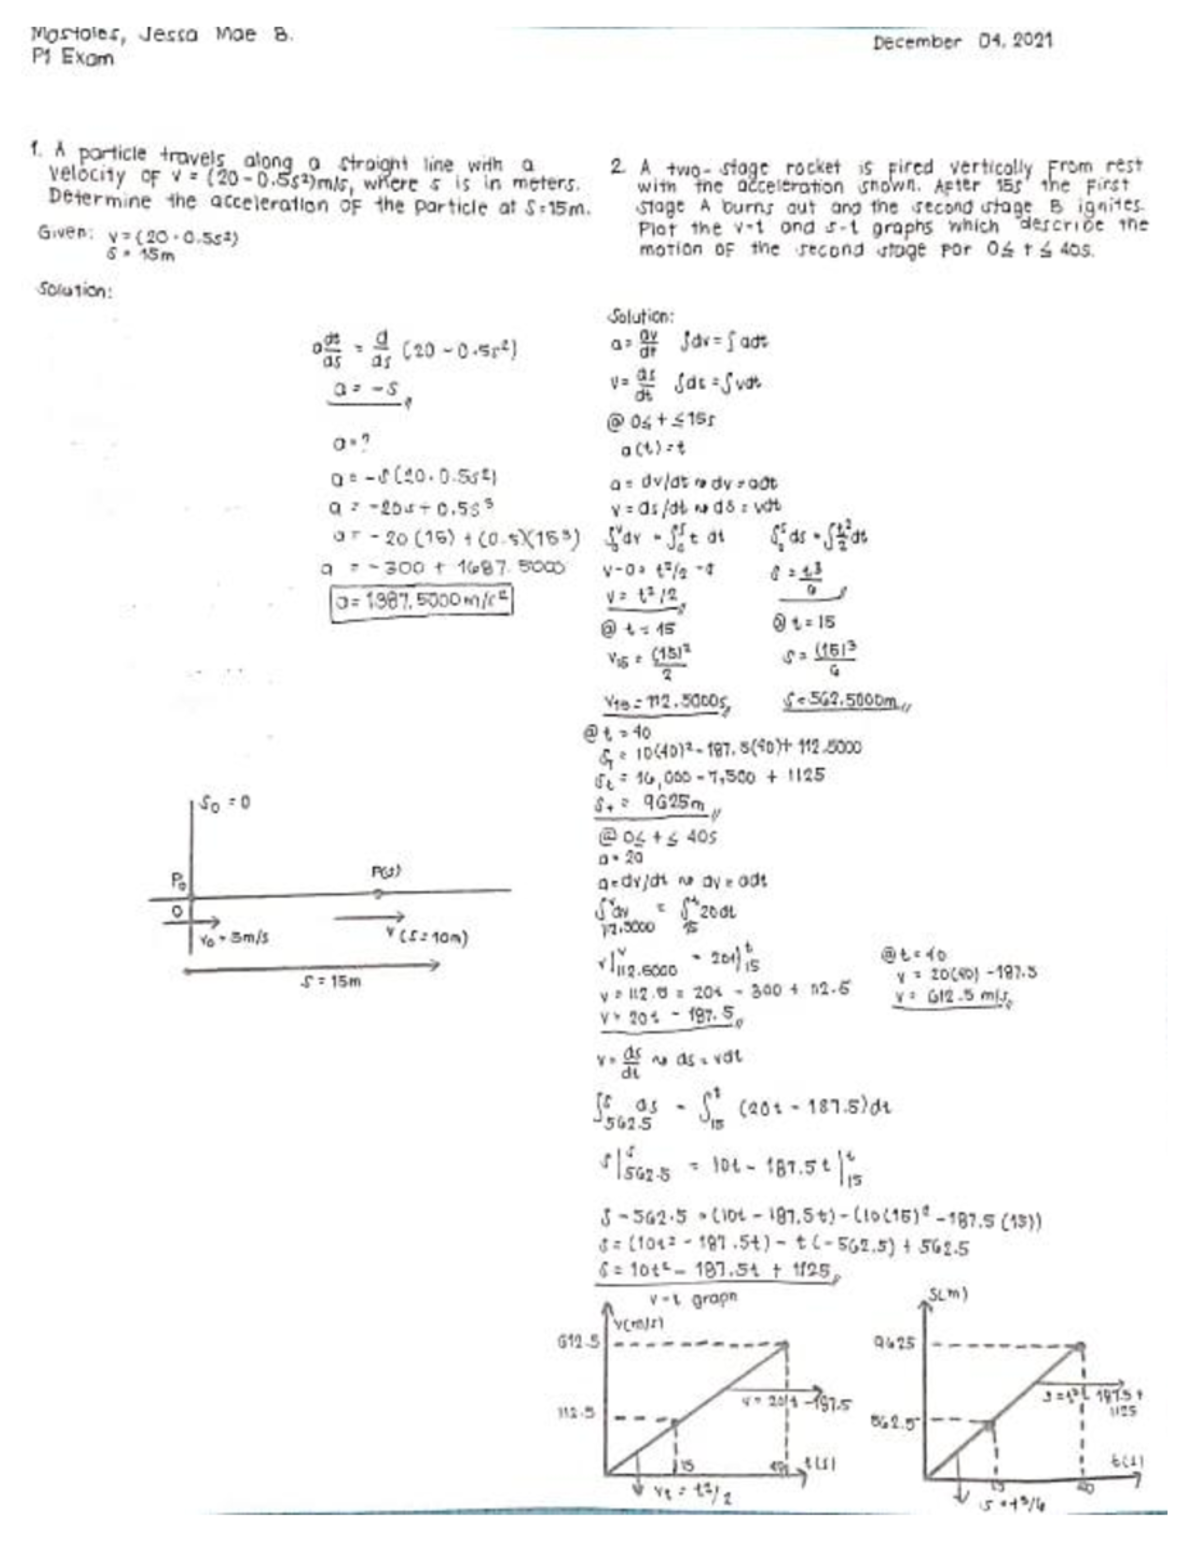 Mostoles, Jessa Mae B.
P1 Exam
December 04, 2021
1. A particle travels along a straight line with a
velocity of v = (20 - 0.5s²)m/s, where s is in meters.
Determine the acceleration of the particle at S=15m.
Given: v = (20 - 0.5s²)
s = 15m
Solution:
a ds/ds = d/ds (20 - 0.5s²)
a = -s
a = ?
a = -s(20 - 0.5s²)
a = -20s + 0.5s³
a = -20(15) + (0.5)(15³)
a = -300 + 1687.5000
a = 1387.5000 m/s²
S₀ = 0
P₀
P(s)
O
v₀ = 5m/s
v (s = 10m)
S = 15m
2. A two-stage rocket is fired vertically from rest
with the acceleration shown. After 15s the first
stage A burns out and the second stage B ignites.
Plot the v-t and s-t graphs which describe the
motion of the second stage for 0≤ t ≤ 40s.
Solution:
a = dv/dt ∫dv = ∫adt
v = ds/dt ∫ds = ∫vdt
@ 0≤ t ≤15s
a(t) = t
a = dv/dt ⇝ dv = adt
v = ds/dt ⇝ ds = vdt
∫₀ᵛdv = ∫₀ᵗ t dt ∫₀ˢ ds = ∫t²/2 dt
v-0 = t²/2 - 0 s = t³/6
v = t²/2
@ t = 15 @ t = 15
v₁₅ = (15)²/2 s = (15)³/6
v₁₅ = 112.5000s s = 562.5000m
@ t = 40
Sₜ = 10(40)² - 187.5(40) + 112.5000
Sₜ = 16,000 - 7,500 + 1125
Sₜ = 9625m
@ 0≤ t ≤ 40s
a = 20
a = dv/dt ⇝ dv = adt
∫ᵛ₁₁₂.₅₀₀₀ dv = ∫ᵗ₁₅ 20dt
v|ᵛ₁₁₂.₅₀₀₀ = 20t|ᵗ₁₅
v = 112.5 = 20t - 300 + 112.5
v = 20t - 187.5
@ t = 40
v = 20(40) - 187.5
v = 612.5 m/s
v = ds/dt ⇝ ds = vdt
∫ˢ₅₆₂.₅ ds = ∫ᵗ₁₅ (20t - 187.5)dt
s|ˢ₅₆₂.₅ = 10t - 187.5t|ᵗ₁₅
s - 562.5 = (10t - 187.5t) - (10(15)² - 187.5(15))
s = (10t² - 187.5t) - t(-562.5) + 562.5
s = 10t² - 187.5t + 1125
v-t graph
v(m/s)
612.5
112.5
v = 20t - 187.5
15
40
t(s)
vₜ = t²/2
S(m)
9625
562.5
s = t² - 187.5t
1125
15
40
t(s)
s = t³/6